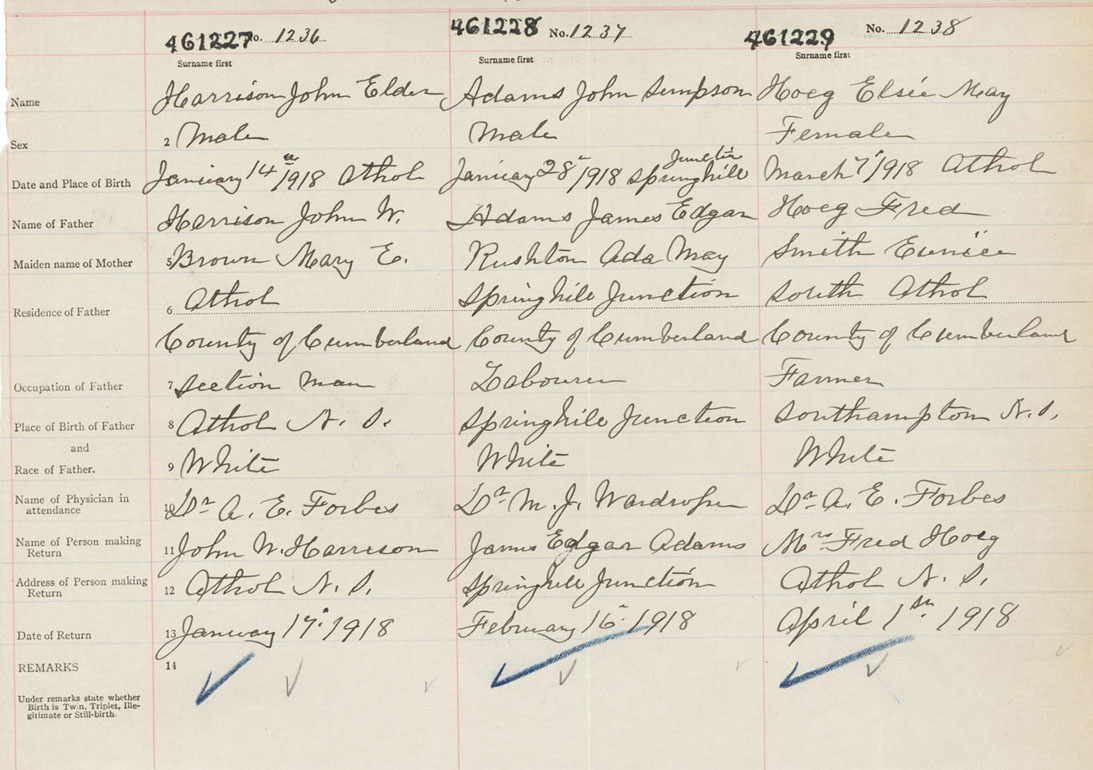 461227 No. 1236 461228 No. 1237 461229 No. 1238
Surname first Surname first Surname first
Name Harrison John Elder Adams John Simpson Hoeg Elsie May
Sex 2 Male Male Female
Date and Place of Birth January 14th 1918 Athol January 28th 1918 Springhill Junction March 7th 1918 Athol
Name of Father Harrison John W. Adams James Edgar Hoeg Fred
Maiden name of Mother 5 Brown Mary E. Rushton Ada May Smith Eunice
Residence of Father 6 Athol Springhill Junction South Athol
County of Cumberland County of Cumberland County of Cumberland
Occupation of Father 7 Section Man Labourer Farmer
Place of Birth of Father 8 Athol N. S. Springhill Junction Southampton N. S.
and
Race of Father. 9 White White White
Name of Physician in attendance 10 Dr A. E. Forbes Dr M. J. Wardrope Dr A. E. Forbes
Name of Person making Return 11 John W. Harrison James Edgar Adams Mrs Fred Hoeg
Address of Person making Return 12 Athol N. S. Springhill Junction Athol N. S.
Date of Return 13 January 1918 February 16 1918 April 1st 1918
REMARKS 14
Under remarks state whether
Birth is Twin, Triplet, Ille-
gitimate or Still-birth.